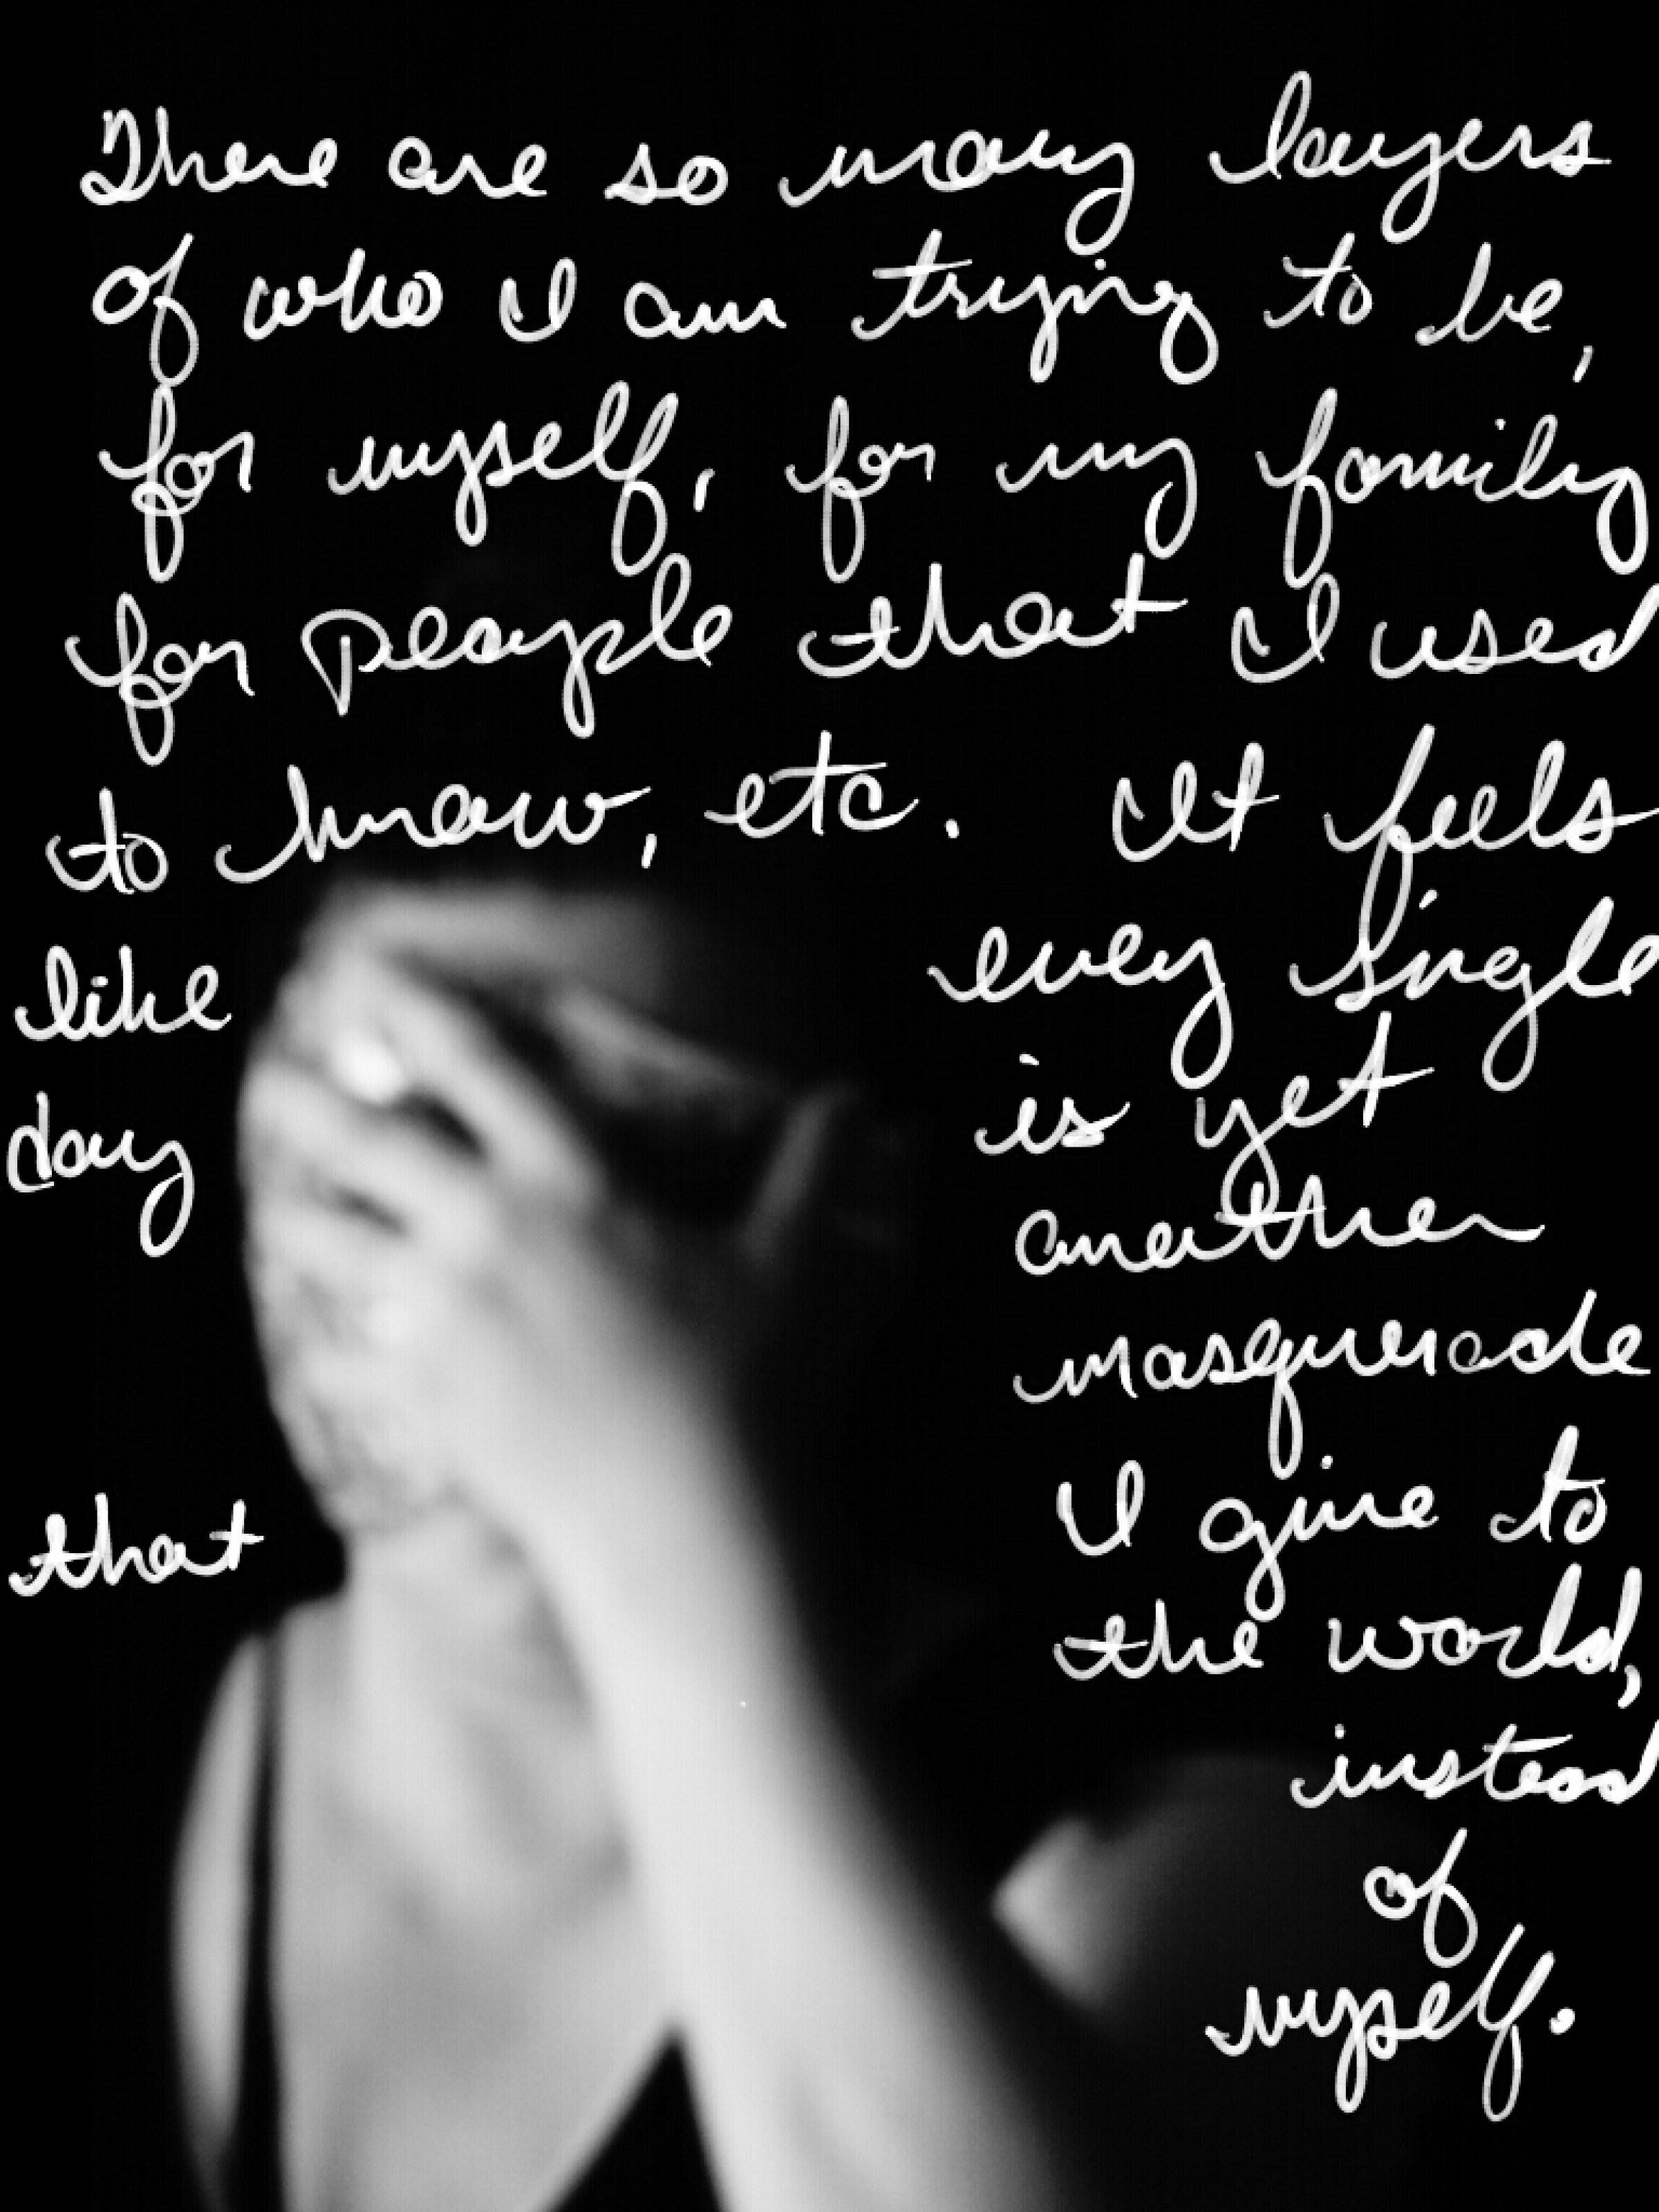 There are so many layers
of who I am trying to be,
for myself, for my family
for people that I used
to know, etc. It feels
like every single
day is yet
another
masquerade
that I give to
the world,
instead
of
myself.